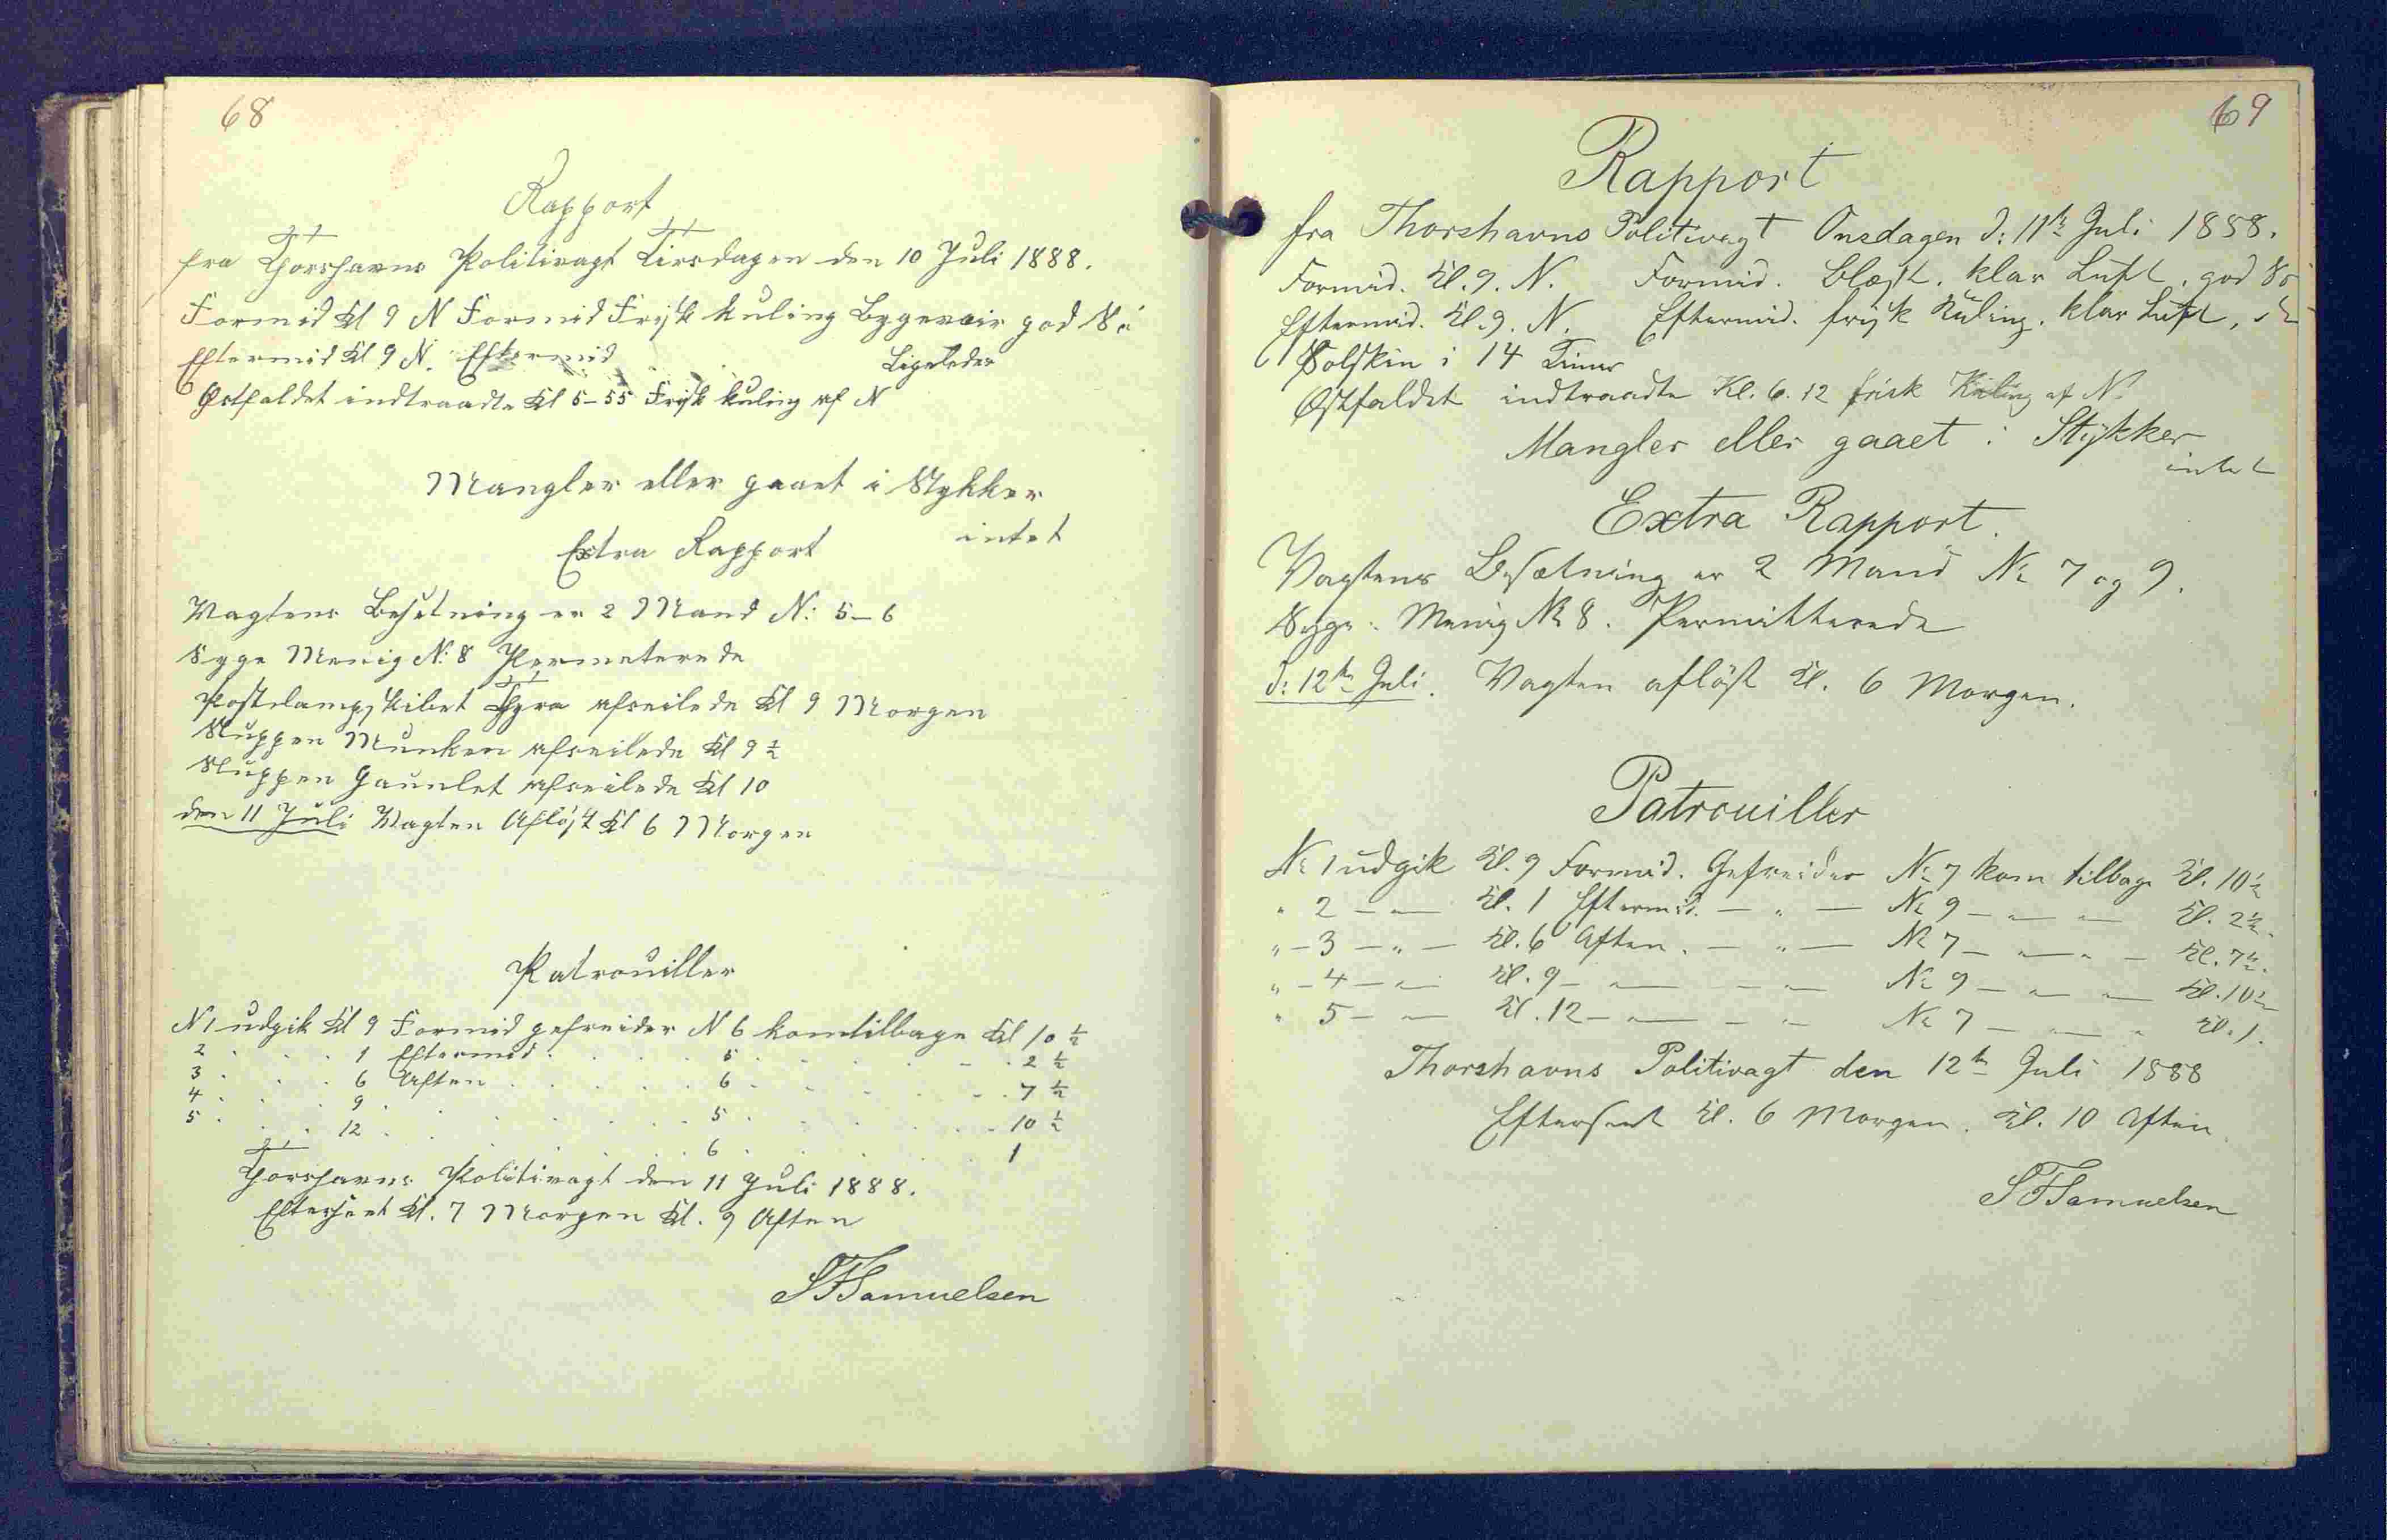 68
Rapport
fra Thorshavns Politivagt Tirsdagen den 10 Juli 1888.
Formid Kl 9 N Formid Frisk Kuling Bygeveir god Sö
Eftermid Kl 9 N. Eftermid Ligeledes
Østfaldet indtraadte Kl 5-55 Frisk Kuling af N
Mangler eller gaaet i Stykker
intet
Extra Rapport
Vagtens Besetning er 2 Mand N: 5-6
Syge Menig N: 8 Permeterede
Postdampskibet Thyra afseilede Kl 9 Morgen
Sluppen Munken afseilede Kl 9 ½
Sluppen Gauntlet afseilede Kl 10
den 11 Juli Vagten Afløst Kl 6 Morgen
Patrouiller
N 1 udgik Kl 9 Formid gefreider N 6 kom tilbage Kl 10 ½
2 . . . 1 Eftermid . . . 5 . . . 2 ½
3 . . . 6 Aften . . . 6 . . . 7 ½
4 . . . 9 . . . 5 . . . 10 ½
5 . . . 12 . . . 6 . . . 1
Thorshavns Politivagt den 11 Juli 1888.
Efterseet Kl. 7 Morgen Kl. 9 Aften
SFSamuelsen
69
Rapport
fra Thorshavns Politivagt Onsdagen d: 11te Juli 1888.
Formid. Kl. 9. N. Formid. Blæst. klar Luft, god Sö
Eftermid. Kl. 9. N. Eftermid. frisk Kuling. klar Luft,
Solskin i 14 Timer
Østfaldet indtraadte Kl. 6.12 frisk Kuling af N.
Mangler eller gaaet i Stykker
intet
Extra Rapport.
Vagtens Besætning er 2 Mand No 7 og 9.
Syge: Menig No 8. Permitterede
d: 12te Juli. Vagten afløst Kl. 6 Morgen.
Patrouiller
No 1 udgik Kl. 9 Formid. Gefreider No 7 kom tilbage Kl. 10½
" 2 — " — Kl. 1 Eftermid. — " — No 9 — " — " — Kl. 2½.
" - 3 — " — Kl. 6 Aften. — " — No 7 — " — " — Kl. 7½.
" - 4 — " — Kl. 9 — " — " — No 9 — " — " — Kl. 10½
" 5 — " — Kl. 12 — " — " — No 7 — " — " Kl. 1.
Thorshavns Politivagt den 12te Juli 1888
Efterseet Kl. 6 Morgen. Kl. 10 Aften
SFSamuelsen